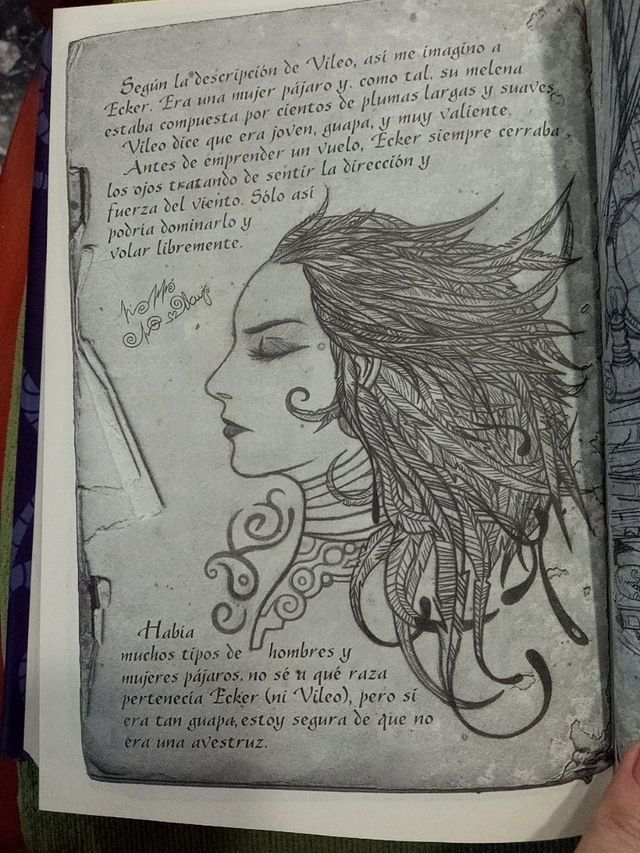 Según la descripción de Vileo, así me imagino a
Ecker. Era una mujer pájaro y, como tal, su melena
estaba compuesta por cientos de plumas largas y suaves.
Vileo dice que era joven, guapa, y muy valiente.
Antes de emprender un vuelo, Ecker siempre cerraba
los ojos tratando de sentir la dirección y
fuerza del viento. Sólo así
podría dominarlo y
volar libremente.
Había
muchos tipos de hombres y
mujeres pájaros, no sé a qué raza
pertenecía Ecker (ni Vileo), pero si
era tan guapa, estoy segura de que no
era una avestruz.